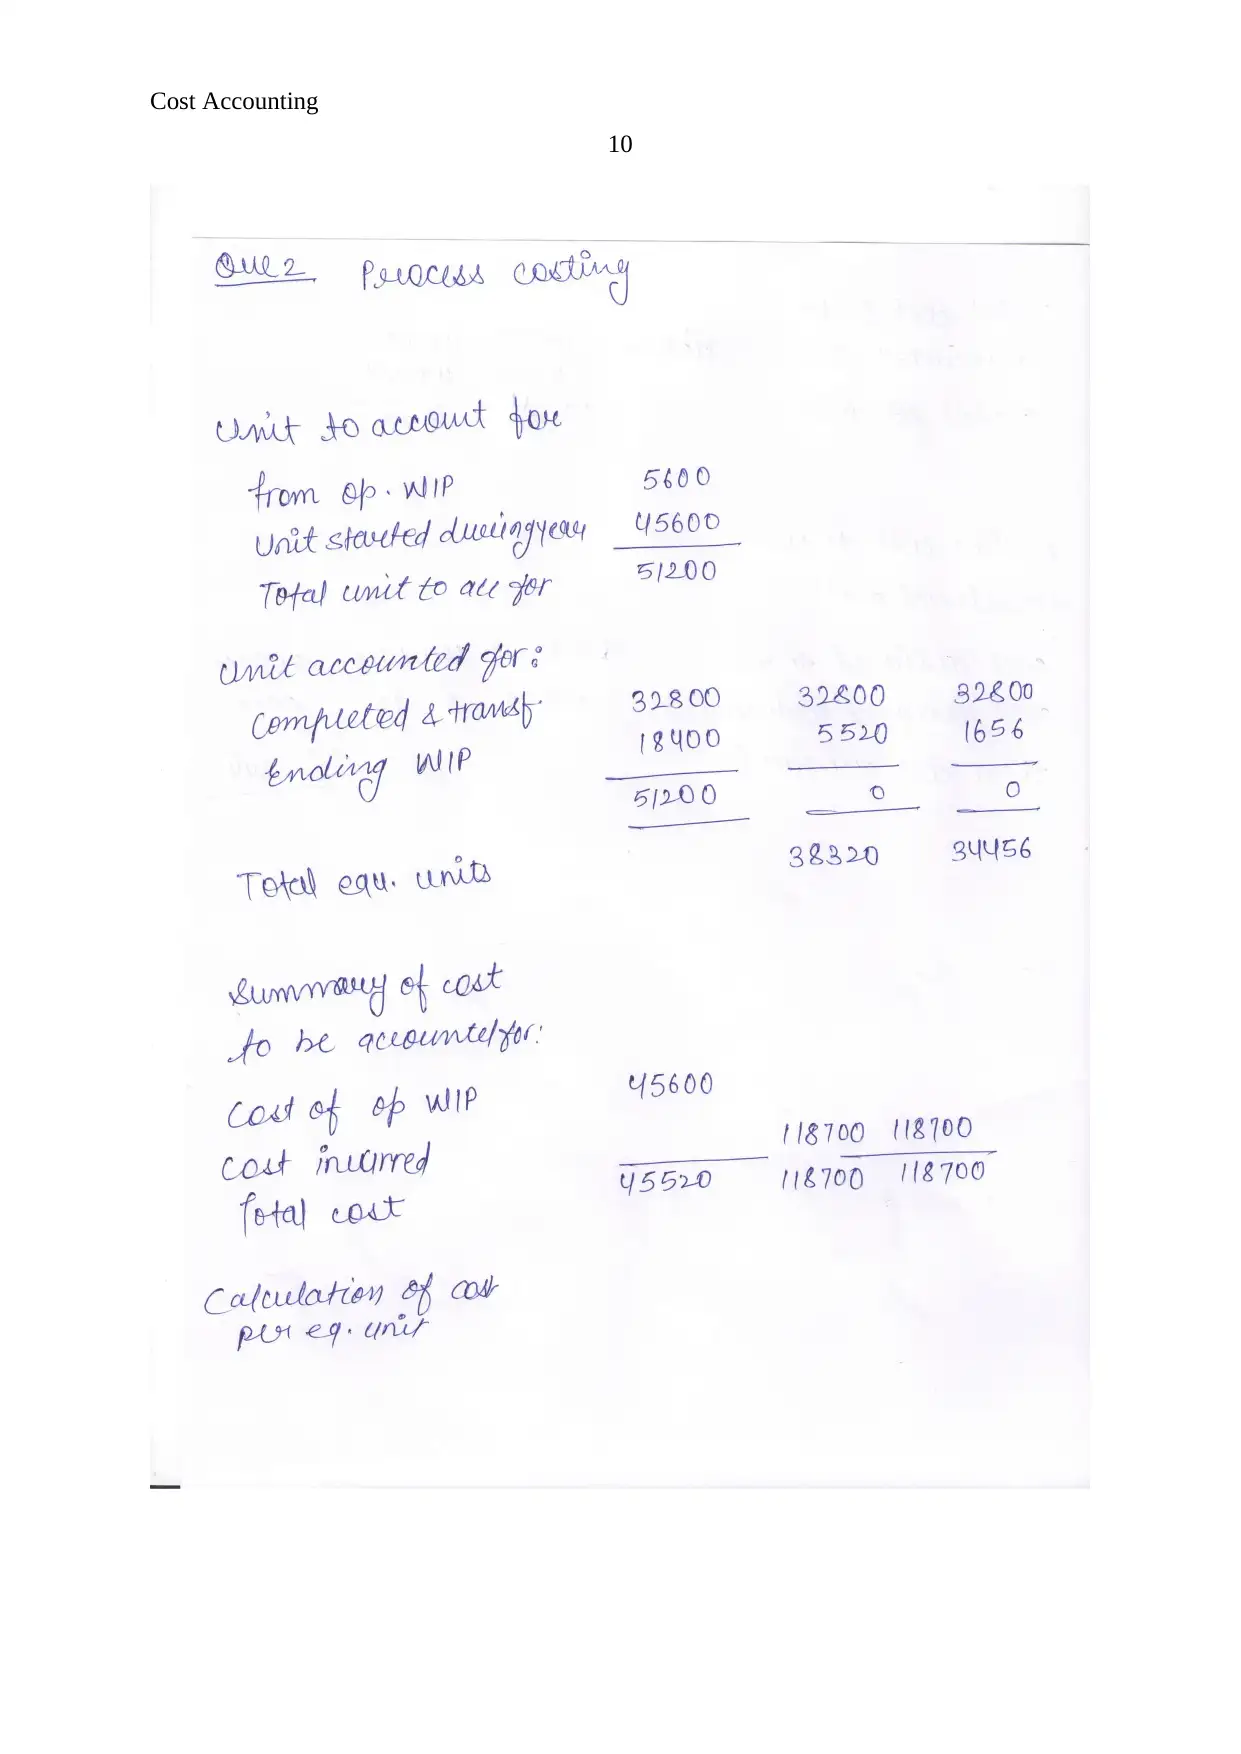 Cost Accounting
10
Que 2 Process costing
Unit to account for
from op. WIP 5600
Unit started during year 45600
Total unit to acc for 51200
Unit accounted for:
Completed & transf. 32800 32800 32800
Ending WIP 18400 5520 1656
51200 0 0
Total equ. units 38320 34456
Summary of cost
to be accounted for:
Cost of op WIP 45600
Cost incurred 118700 118700
Total cost 45520 118700 118700
Calculation of cost
per eq. unit